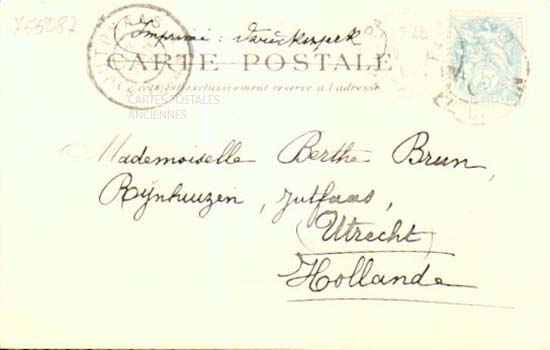 755087
Imprimé : Drucksperk
CARTE POSTALE
Ce côté est exclusivement réservé à l'adresse
CARTES POSTALES
ANCIENNES
Mademoiselle Berthe Brun,
Rijnhuizen, Jutfaas,
(Utrecht)
Hollande
5